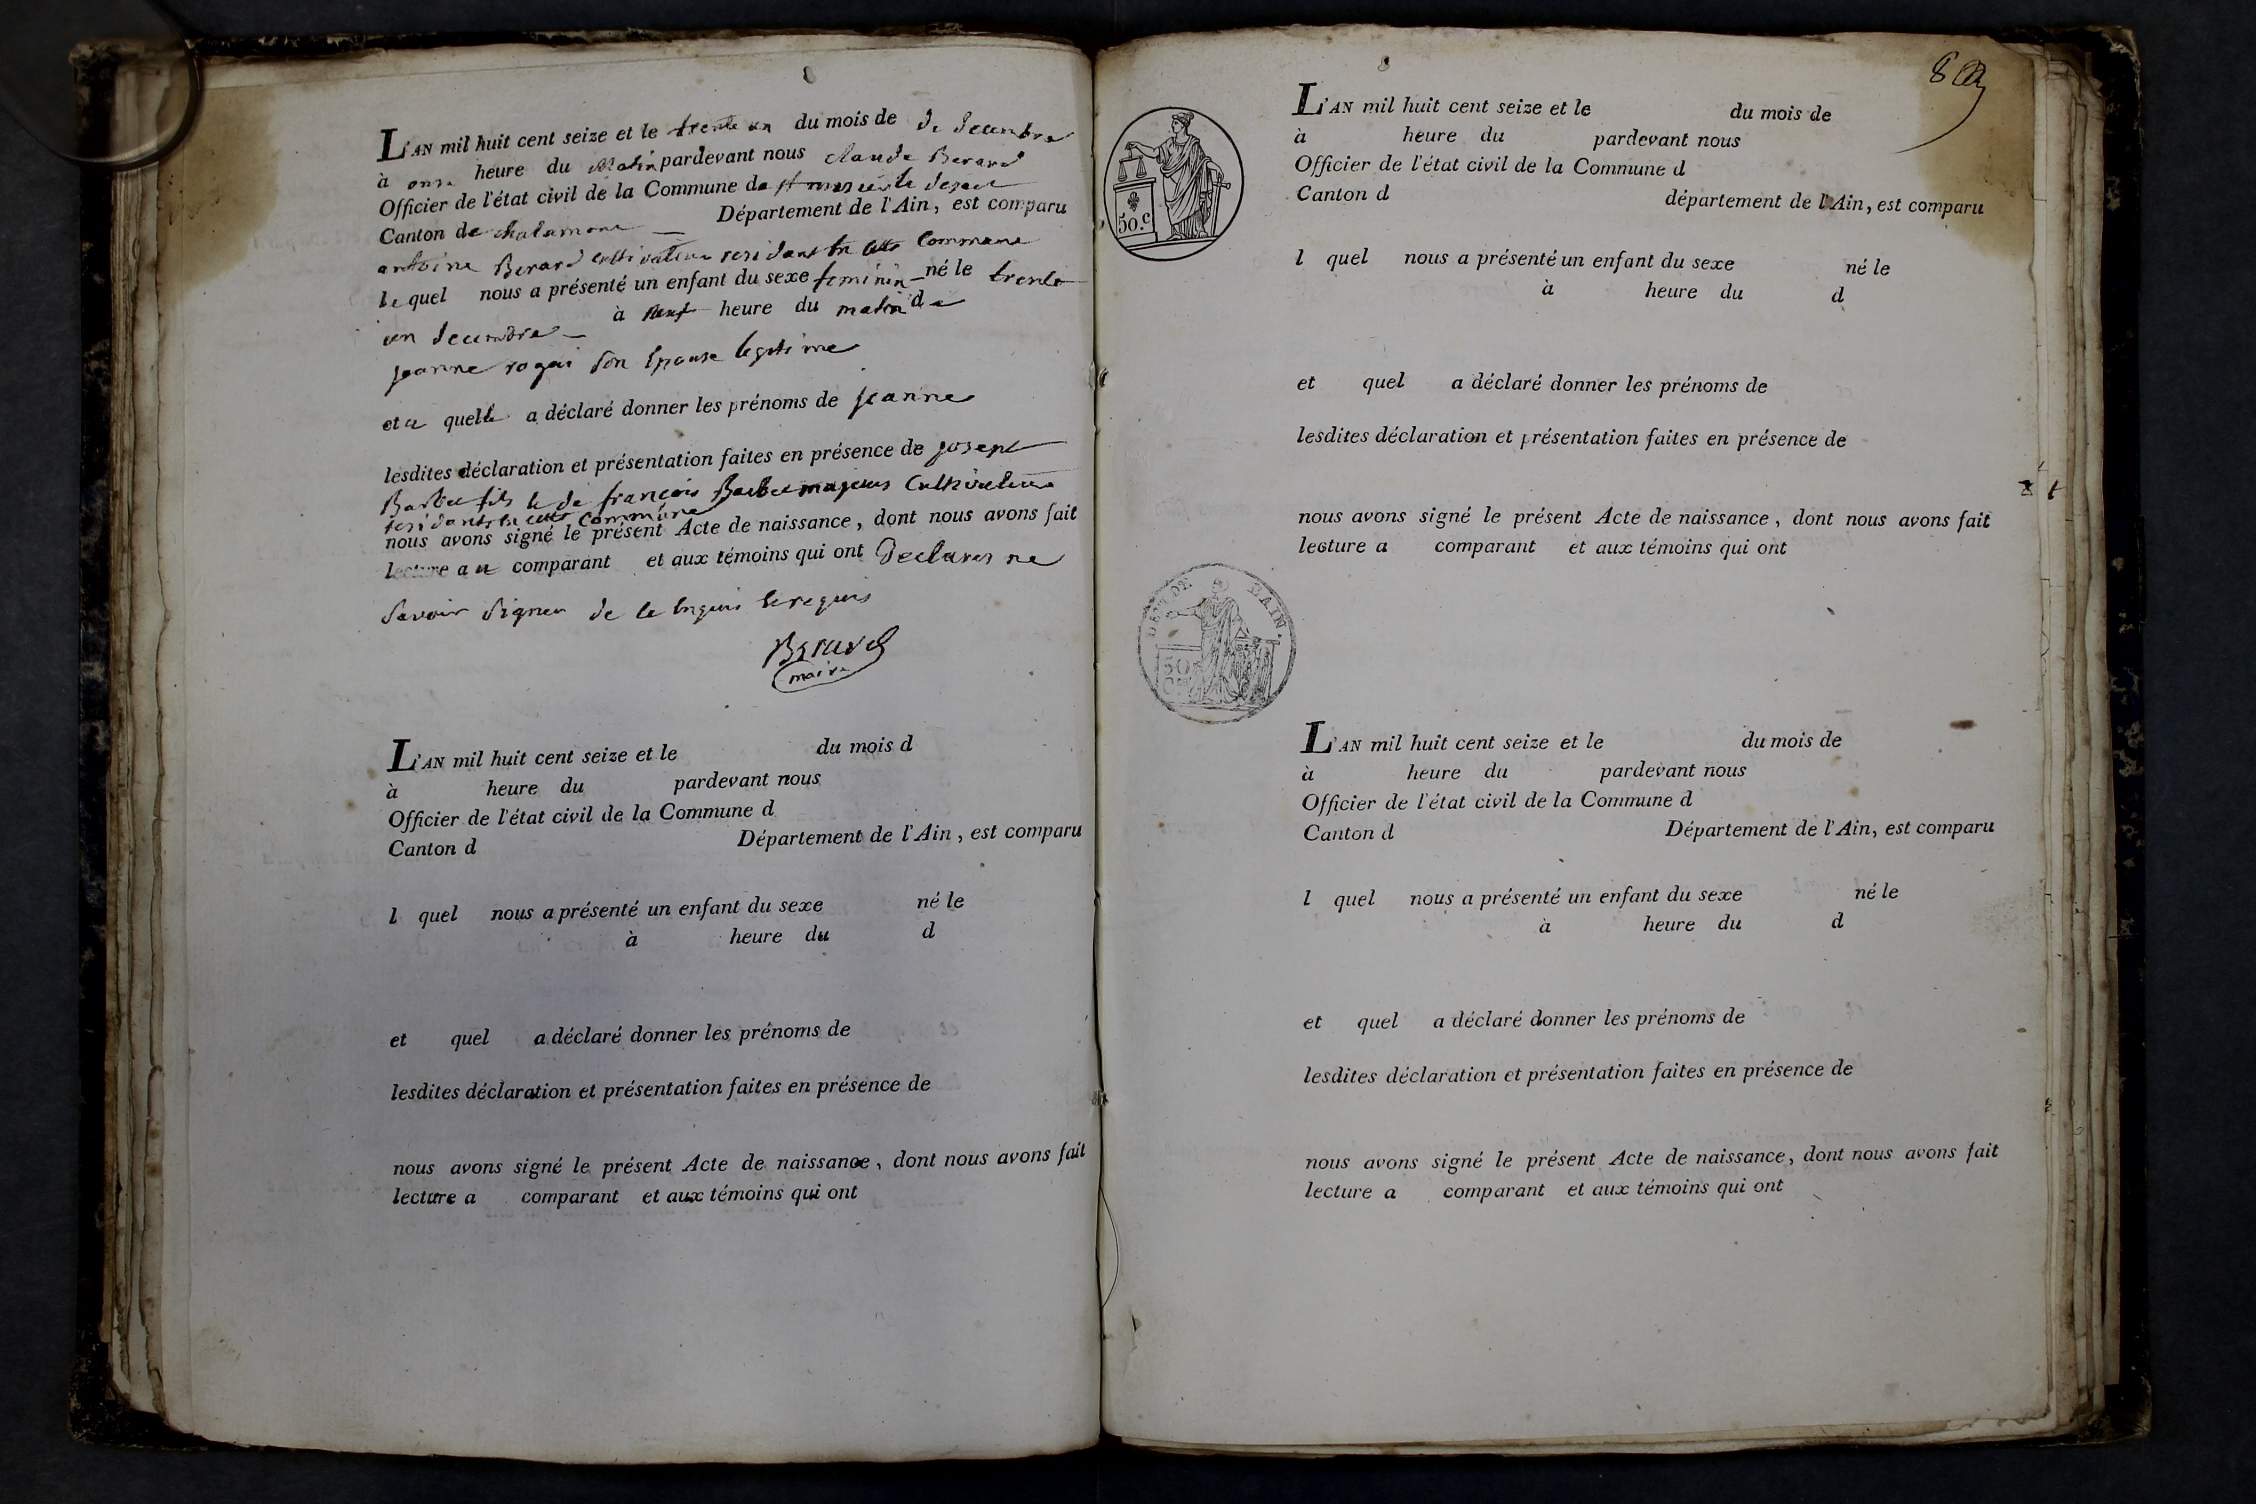 L'AN mil huit cent seize et le trente un du mois de de decembre
à onze heure du Matin pardevant nous claude Berard
Officier de l'état civil de la Commune de st
Canton de chalamont Département de l'Ain, est comparu
antoine Berard cultivateur residant en cette Commune
le quel nous a présenté un enfant du sexe feminin né le trente
un decembre à neuf heure du matin de
jeanne rogai son Epouse legitime
et a quelle a déclaré donner les prénoms de jeanne
lesdites déclaration et présentation faites en présence de joseph
Barbet fils de françois Barbet majeurs Cultivateurs
residants en cette Commune
nous avons signé le présent Acte de naissance, dont nous avons fait
lecture au comparant et aux témoins qui ont Declares ne
savoir signer de ce enquis
Berard
maire
L'AN mil huit cent seize et le du mois d
à heure du pardevant nous
Officier de l'état civil de la Commune d
Canton d Département de l'Ain, est comparu
l quel nous a présenté un enfant du sexe né le
à heure du d
et quel a déclaré donner les prénoms de
lesdites déclaration et présentation faites en présence de
nous avons signé le présent Acte de naissance, dont nous avons fait
lecture a comparant et aux témoins qui ont
50.c
L'AN mil huit cent seize et le du mois de
à heure du pardevant nous
Officier de l'état civil de la Commune d
Canton d département de l'Ain, est comparu
l quel nous a présenté un enfant du sexe né le
à heure du d
et quel a déclaré donner les prénoms de
lesdites déclaration et présentation faites en présence de
nous avons signé le présent Acte de naissance, dont nous avons fait
lecture a comparant et aux témoins qui ont
DEPT DE L'AIN.
50
L'AN mil huit cent seize et le du mois de
à heure du pardevant nous
Officier de l'état civil de la Commune d
Canton d Département de l'Ain, est comparu
l quel nous a présenté un enfant du sexe né le
à heure du d
et quel a déclaré donner les prénoms de
lesdites déclaration et présentation faites en présence de
nous avons signé le présent Acte de naissance, dont nous avons fait
lecture a comparant et aux témoins qui ont